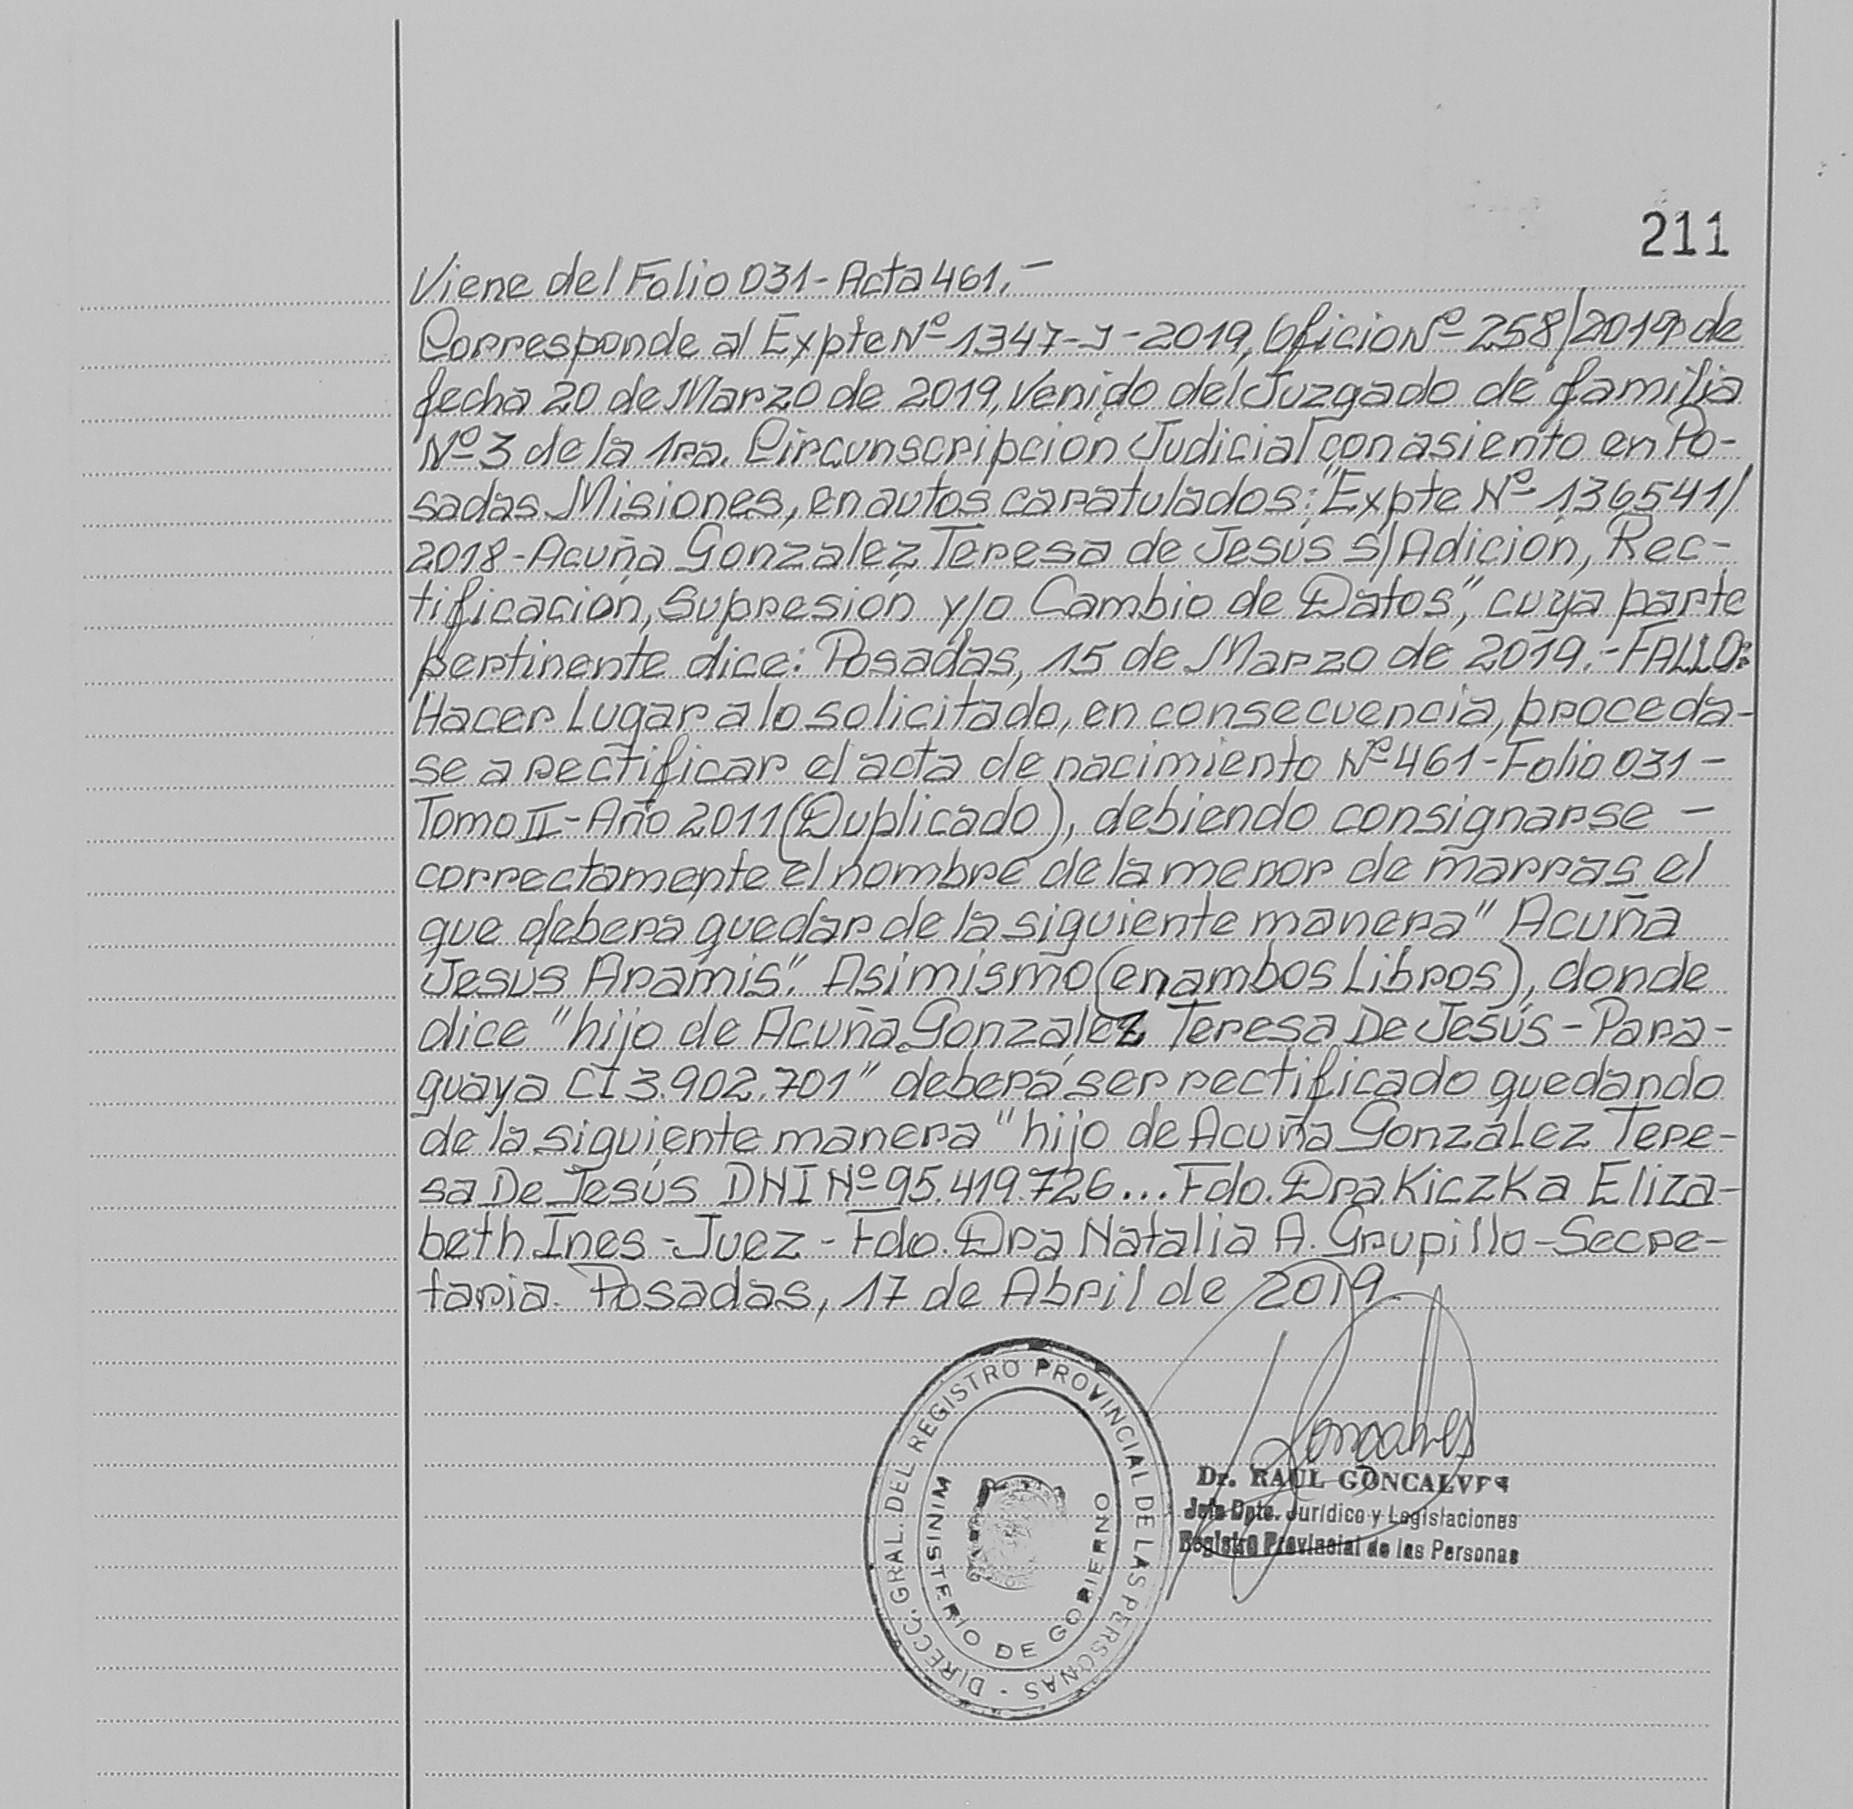 211
Viene del Folio 031 - Acta 461.-
Corresponde al Expte Nº 1347-J-2019, Oficio Nº 258/2019 de
fecha 20 de Marzo de 2019, Venido del Juzgado de familia
Nº 3 de la 1ra. Circunscripcion Judicial con asiento en Po-
sadas Misiones, en autos caratulados: "Expte Nº 136541/
2018 - Acuña Gonzalez Teresa de Jesús s/Adición, Rec-
tificación, Supresión y/o Cambio de Datos", cuya parte
pertinente dice: Posadas, 15 de Marzo de 2019.- FALLO:
Hacer Lugar a lo solicitado, en consecuencia, proceda-
se a rectificar el acta de nacimiento Nº 461 - Folio 031 -
Tomo II - Año 2011 (Duplicado), debiendo consignarse -
correctamente el nombre de la menor de marras el
que debera quedar de la siguiente manera "Acuña
Jesus Aramis". Asimismo (en ambos Libros), donde
dice "hijo de Acuña Gonzalez Teresa De Jesús - Para-
guaya CI 3.902.701" deberá ser rectificado quedando
de la siguiente manera "hijo de Acuña González Tere-
sa De Jesús DNI Nº 95.419.726... Fdo. Dra Kiczka Eliza-
beth Ines - Juez - Fdo. Dra Natalia A. Grupillo - Secre-
taria. Posadas, 17 de Abril de 2019.
DIRECC. GRAL. DEL REGISTRO PROVINCIAL DE LAS PERSONAS -
MINISTERIO DE GOBIERNO
Dr. RAUL GONCALVES
Jefe Dpto. Jurídico y Legislaciones
Registro Provincial de las Personas